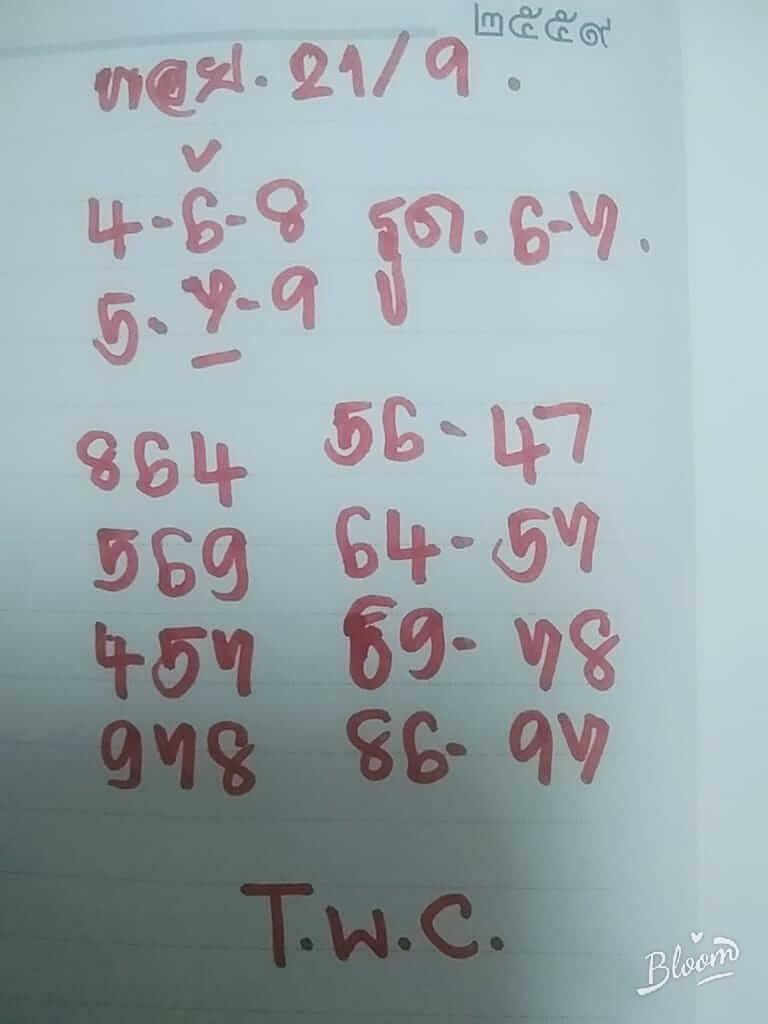 ๒๕๕๙
หวย. 21/9.
4-6-8 รูด. 6-7.
5-7-9
864 56-47
569 64-57
457 69-78
978 86-97
T.W.C.
Bloom